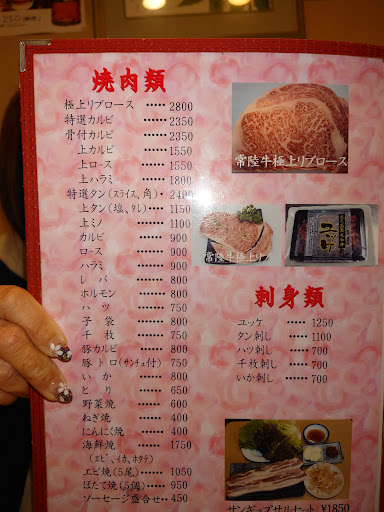 焼肉類
極上リブロース ····· 2800
特選カルビ ······ 2350
骨付カルビ ······ 2350
上カルビ ····· 1550
上ロース ····· 1550
上ハラミ ····· 1800
特選タン(スライス、角)· 2400
上タン(塩、タレ)···· 1150
上ミノ ····· 1100
カルビ ····· 900
ロース ····· 900
ハラミ ····· 900
レバ ····· 800
ホルモン ····· 800
ハツ ····· 750
子袋 ····· 800
千枚 ····· 750
豚カルビ ····· 800
豚トロ(サンチュ付) 750
いか ····· 800
とり ····· 650
野菜焼 ····· 600
ねぎ焼 ····· 400
にんにく焼 ····· 400
海鮮焼 ····· 1750
(エビ、イカ、ホタテ)
エビ焼(5尾)····· 1050
ほたて焼(5個)····· 950
ソーセージ盛合せ·· 450
常陸牛極上リブロース
常陸牛極上リ
ユッケ
刺身類
ユッケ ····· 1250
タン刺し ····· 1100
ハツ刺し ····· 700
千枚刺し ····· 700
いか刺し ····· 700
サンギョプサルセット ¥1850